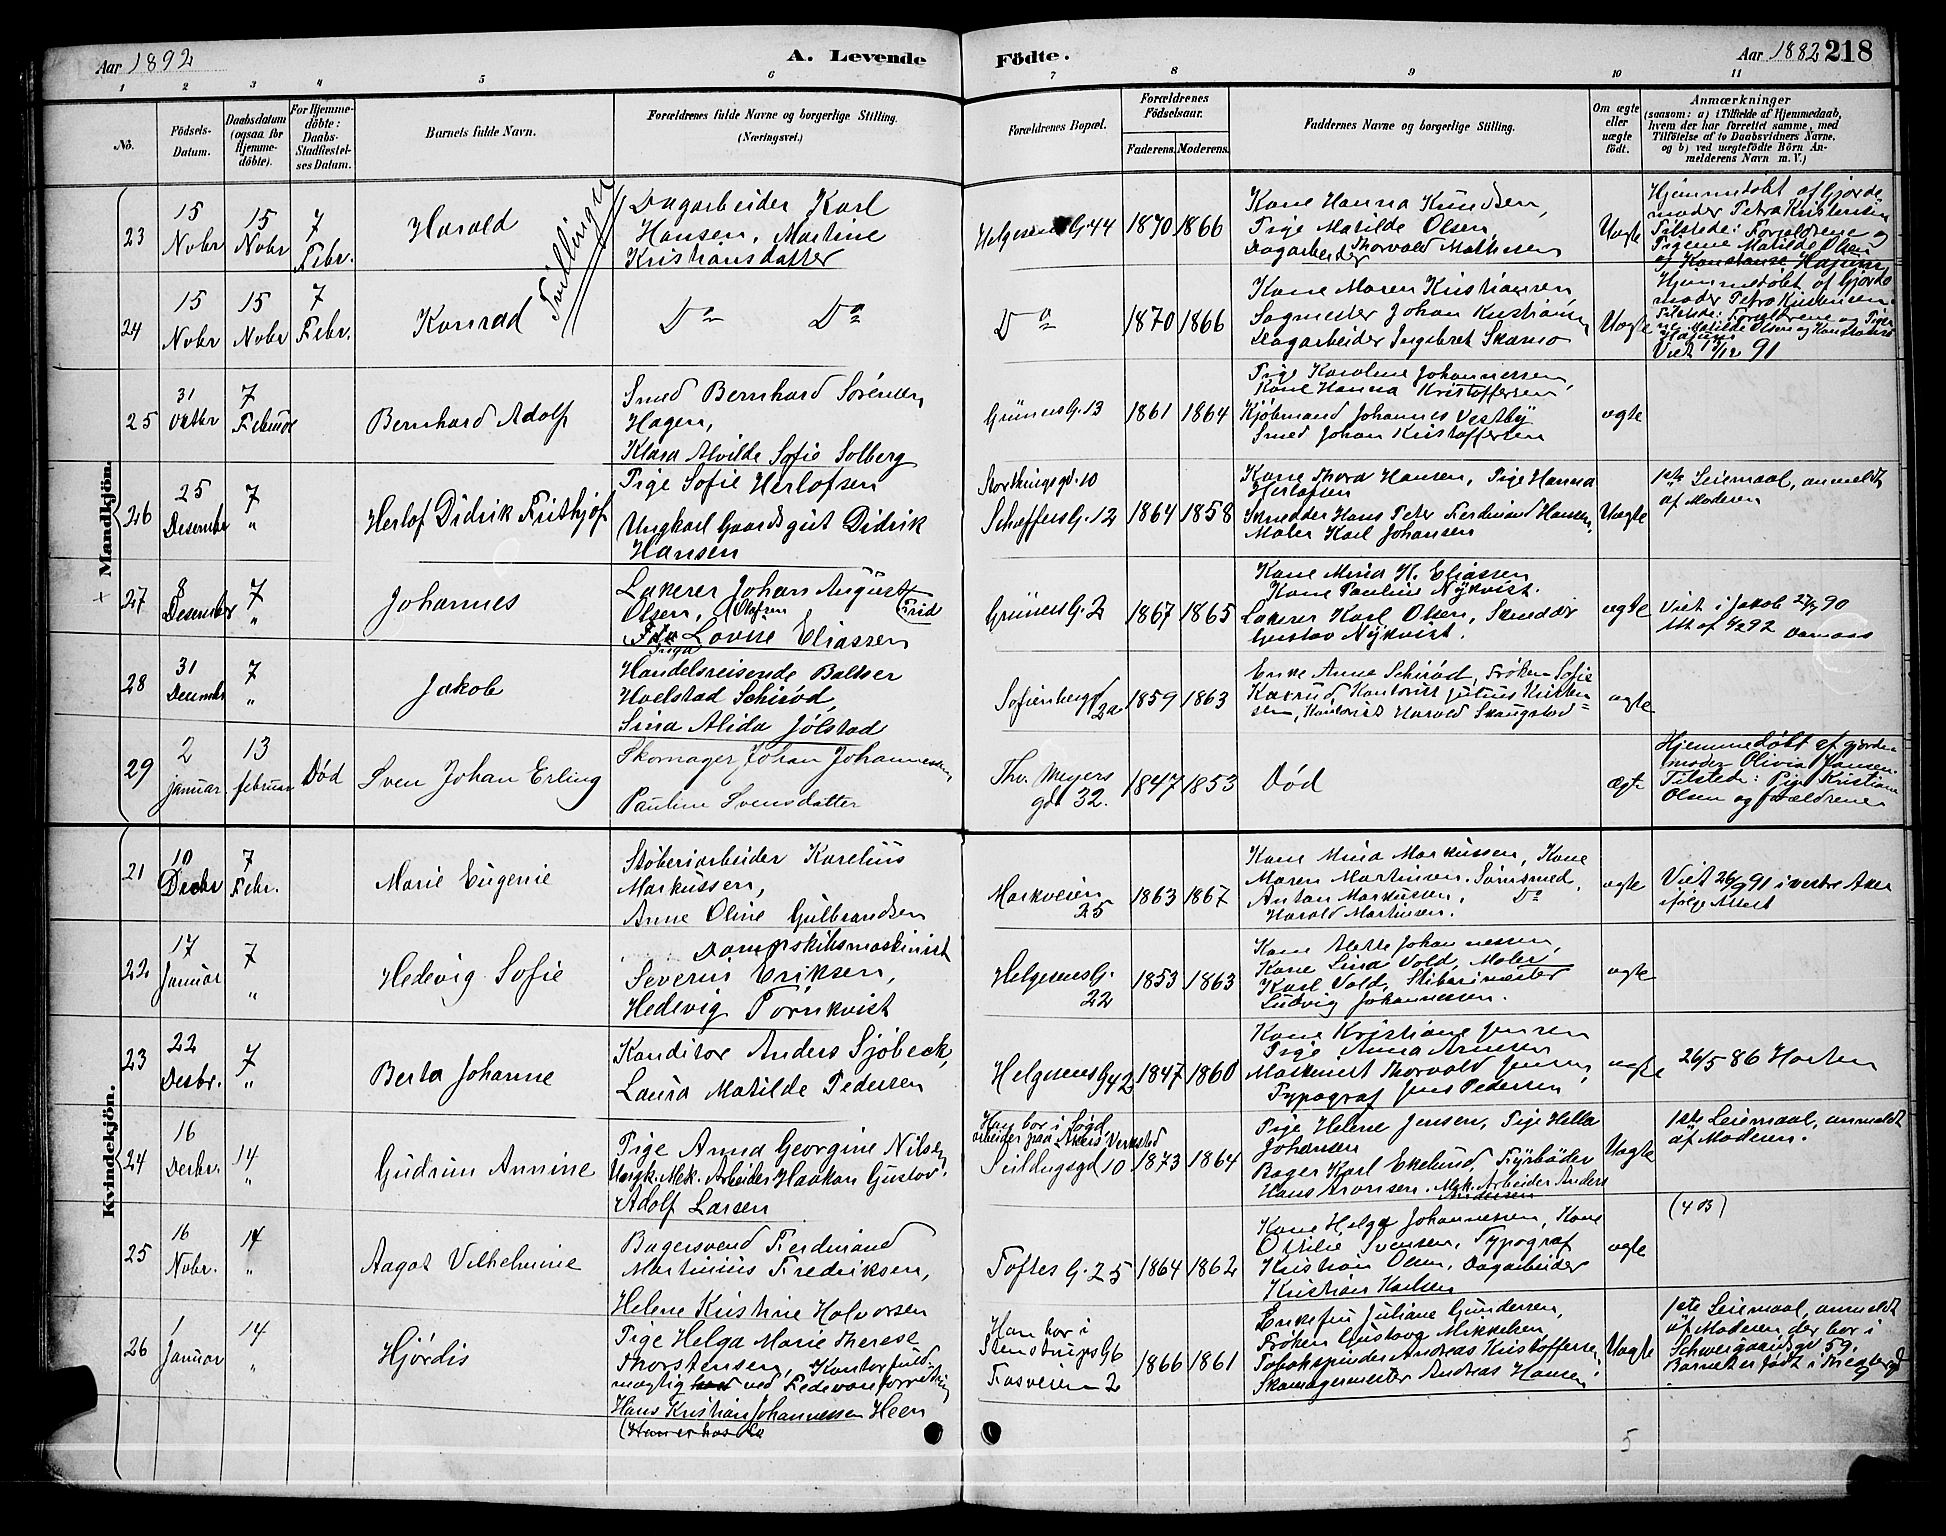 Aar 1892
A. Levende
Fødte.
Aar 1882
218
1 2 3 4 5 6 7 8 9 10 11
No.
Födsels-
Datum.
Daabsdatum
(ogsaa for
Hjemme-
döbte).
For Hjemme-
döbte:
Daabs-
Stadfæstel-
ses Datum.
Barnets fulde Navn.
Forældrenes fulde Navne og borgerlige Stilling.
(Næringsvei.)
Forældrenes Bopæl.
Forældrenes
Födselsaar.
Faderens. Moderens.
Faddernes Navne og borgerlige Stilling.
Om ægte
eller
uægte
födt.
Anmærkninger
(saasom: a) i Tilfælde af Hjemmedaab,
hvem der har forrettet samme, med
Tilföielse af to Daabsvidners Navne.
og b) ved uægtefödte Börn An-
melderens Navn m. V.)
Mandkjön.
23
15
Novbr
15
Novbr
7
Febr.
Harald
Tvillinger
Dagarbeider Karl
Hansen, Martine
Kristiansdatter
Helgesens G. 44
1870 1866
Kone Hanna Knudsen,
Pige Matilde Olsen,
Dagarbeider Thorvald Mathisen
Uægte
Hjemmedøbt af Gjorde
moder Petra Kristensen
Tilstede: Forældrene og
Pigerne Matilde Olsen
og Konstanse
24
15
Novbr
15
Novbr
7
Febr.
Konrad
Do Do
Do
1870 1866
Kone Maren Kristiansen
Sagmester Johan Kristiansen,
Dagarbeider Ingebret Skamo
Uægte
Hjemmedøbt af Gjorde
moder Petra Kristensen.
Tilstede: Forældrene og Piger
ne Matilde Olsen og Konstanse
91
25
31
Oktbr
7
Februar
Bernhard Adolf
Smed Bernhard Sørensen
Hagen,
Klara Alvilde Sofie Solberg
Grüners G. 13
1861 1864
Pige Karoline Johannessen,
Kone Hanna Kristoffersen
Kjøbmand Johannes Vestby
Smed Johan Kristoffersen
ægte
26
25
Desember
7
"
Herlof Didrik Frithjof
Pige Sofie Herlofsen
Ungkarl Gaardsgut Didrik
Hansen
Storthingsgd. 10
Schæffers G. 12
1864 1858
Kone Thora Hansen, Pige Hanna
Herlofsen
Skredder Hans Peter Ferdinand Hansen,
Maler Karl Johansen
Uægte
1ste Leiemaal, anmeldt
af Moderen
27
8
Desember
7
"
Johannes
Lakerer Johan August
Olsen,
Lovise Eliassen
Grüners G. 2
1867 1865
Kone Mina H. Eliassen
Kone Pauline Nykvist.
Lakerer Karl Olsen, Skredder
Gustav Nykvist.
ægte
Viet i Jakob 27/7 90
Att af 4/2 92
28
31
Decembr
7
"
Jakob
Handelsreisende Baltser
Hoelstad Schirød,
Sina Alida Jølstad
Sofienberggd
2a
1859 1863
Enke Anne Schirød, Frøken Sofie
Kaxrud, Kontorist Julius Kristen
sen, Kontorist Harald Skaugstad
ægte
29
2
januar
13
februar
Død
Sven Johan Erling
Skomager Johan Johannessen
Pauline Svensdatter
Thv. Meyers
gd 32.
1847 1853
Død
ægte
Hjemmedøbt af gjorde
moder Olivia Jansen
Tilstede: Pige Kristiane
Olsen og forældrene
Kvindekjön.
21
10
Decbr
7
Febr.
Marie Eugenie
Støberiarbeider Karelius
Markussen,
Anne Oline Gulbrandsen
Markveien
25
1863 1867
Kone Mina Markussen, Kone
Maren Martinsen. Sømsmed,
Anton Markussen, Do
Harald Martinsen.
ægte
Viet 26/9 91 i vestre Aker
ifølge Attest
22
17
Januar
7
"
Hedevig Sofie
Dampskibsmaskinist
Severin Eriksen,
Hedevig Tørnkvist
Helgesens G.
22
1853 1863
Kone Mette Johannessen,
Kone Lina Vold, Maler
Karl Vold, Støberimester
Ludvig Johannessen.
ægte
23
22
Desbr.
7
"
Berta Johanne
Konditor Anders Sjöbeck,
Laura Matilde Pedersen
Helgesens G 42
1847 1860
Kone Kristiane Jensen
Pige Anna Arnesen
Maskinist Thorvald Jensen,
Typograf Jens Pedersen
ægte
26/5 86 Horten
24
16
Desbr.
14
"
Gudrun Annine
Pige Anna Georgine Nilsen
Ungk. Mek. Arbeider Haakon Gustav
Adolf Larsen
Han bor i Søgd
arbeider paa Akers Verksted
Seildugsgd 10
1873 1864
Pige Helene Jensen, Pige Hella
Johansen
Bager Karl Ekelund, Fyrbøder
Hans Aronsen. Mek. Arbeider Anders
Andersen
Uægte
1ste Leiemaal, anmeldt
af Moderen.
25
16
Novbr.
14
"
Aagot Vilhelmine
Bagersvend Ferdinand
Martinius Fredriksen,
Helene Kristine Halvorsen
Toftes G. 25
1864 1862
Kone Helga Johannessen, Kone
Ottilie Svensen, Typograf
Kristian Olsen, Dagarbeider
Kristian Karlsen
ægte
(4 B)
26
1
Januar
14
"
Hjørdis
Pige Helga Marie Therese
Thorstensen, Kontorfuld-
mægtig ved Fedevareforretning
Hans Kristian Johannessen Heen
Han bor i
Stenstrups G 6
Fossveien 2
1866 1861
Enkefru Juliane Gundersen,
Frøken Gustava Mikkelsen,
Tobakspinder Andreas Kristoffersen,
Skomagermester Andreas Hansen
Uægte
1ste Leiemaal, anmeldt
af Moderen, der bor i
Schweigaardsgd 59.
Barnet er født i
5